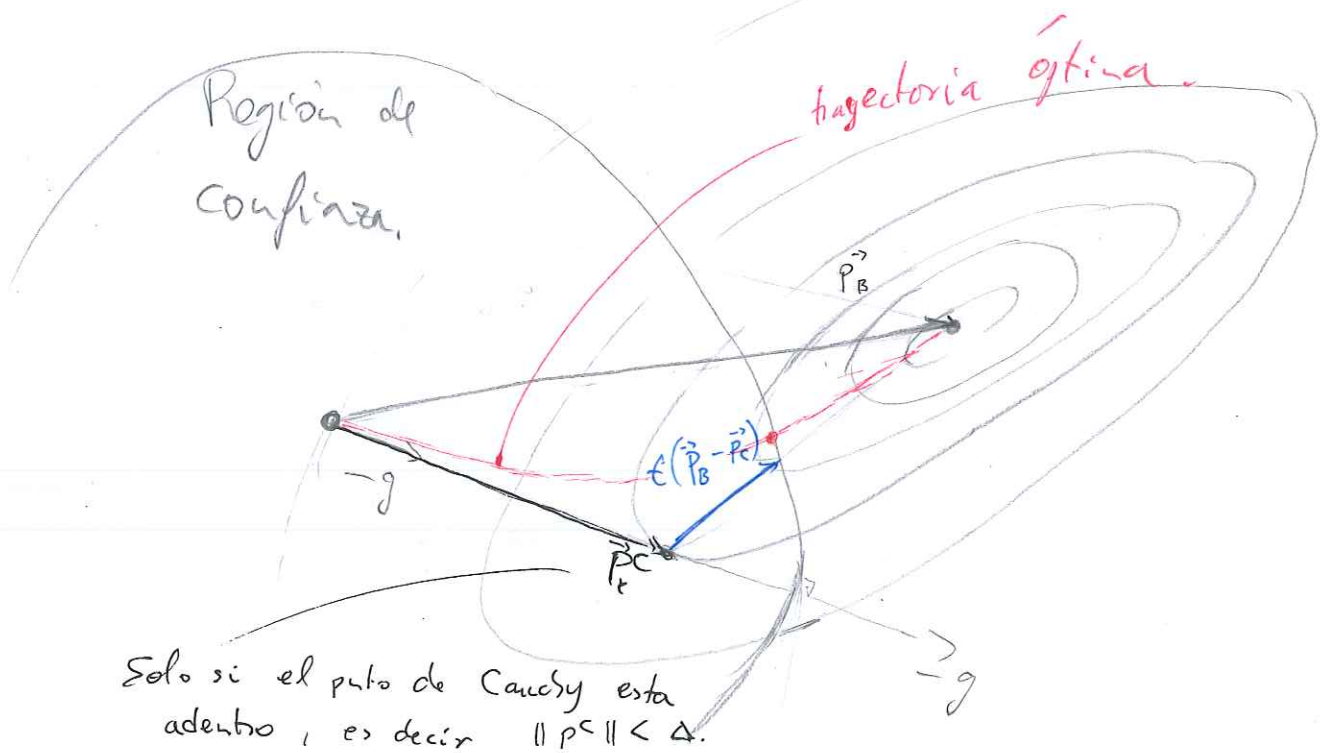 Región de
confianza.
trayectoria óptima.
p⃗_B
-g
t(p⃗_B - p⃗_c)
p⃗_t^c
-g
Solo si el puto de Cauchy esta
adentro, es decir ||p^c|| < Δ.